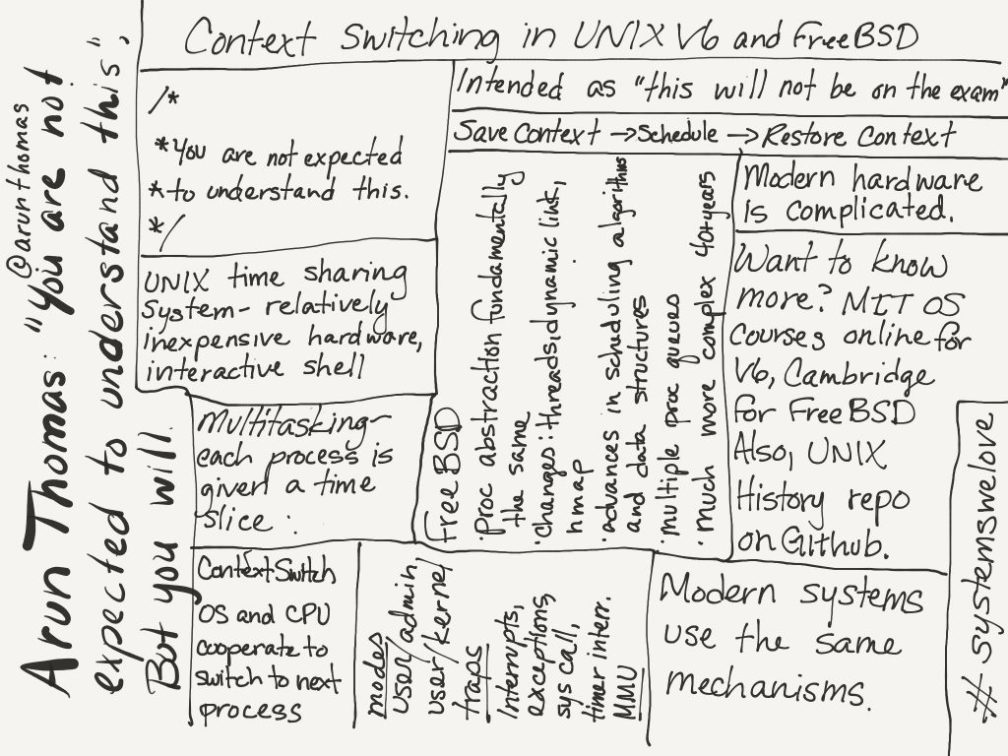 @arunthomas
Arun Thomas: "You are not
expected to understand this",
But you will.
Context Switching in UNIX V6 and FreeBSD
/*
* You are not expected
* to understand this.
*/
Intended as "this will not be on the exam"
Save Context → Schedule → Restore Context
UNIX time sharing
System - relatively
inexpensive hardware,
interactive shell
Multitasking -
each process is
given a time
slice.
Context Switch
OS and CPU
cooperate to
switch to next
process
modes
user/admin,
user/kernel
traps
Interrupts,
exceptions,
sys call,
timer interr.
MMU
FreeBSD
· Proc abstraction fundamentally
the same
· changes: threads, dynamic link,
nmap
· advances in scheduling algorithms
and data structures
· multiple proc queues
· much more complex 40+ years
Modern hardware
is complicated.
Want to know
more? MIT OS
Courses online for
V6, Cambridge
for FreeBSD
Also, UNIX
History repo
on Github.
Modern systems
use the same
mechanisms.
# systemswelove